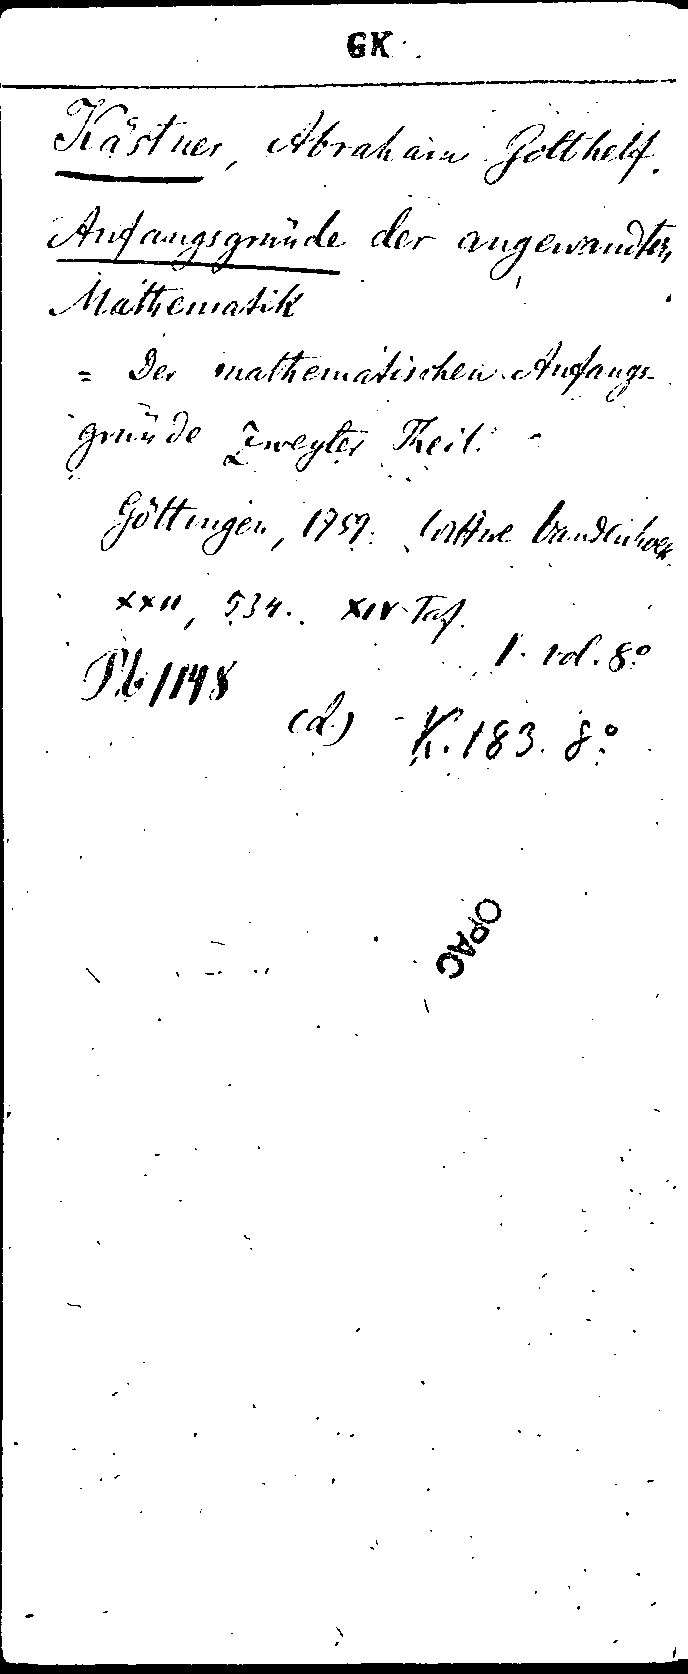 GK
Kästner, Abraham Gotthelf.
Anfangsgründe der angewandten
Mathematik
= Der mathematischen Anfangs-
gründe Zweyter Theil. -
Göttingen, 1759. Wittwe Vandenhoek
XXII, 534. XIV Taf.
1. vol. 8°
Pb 1148
(d.) - K. 183. 8°
OPAC